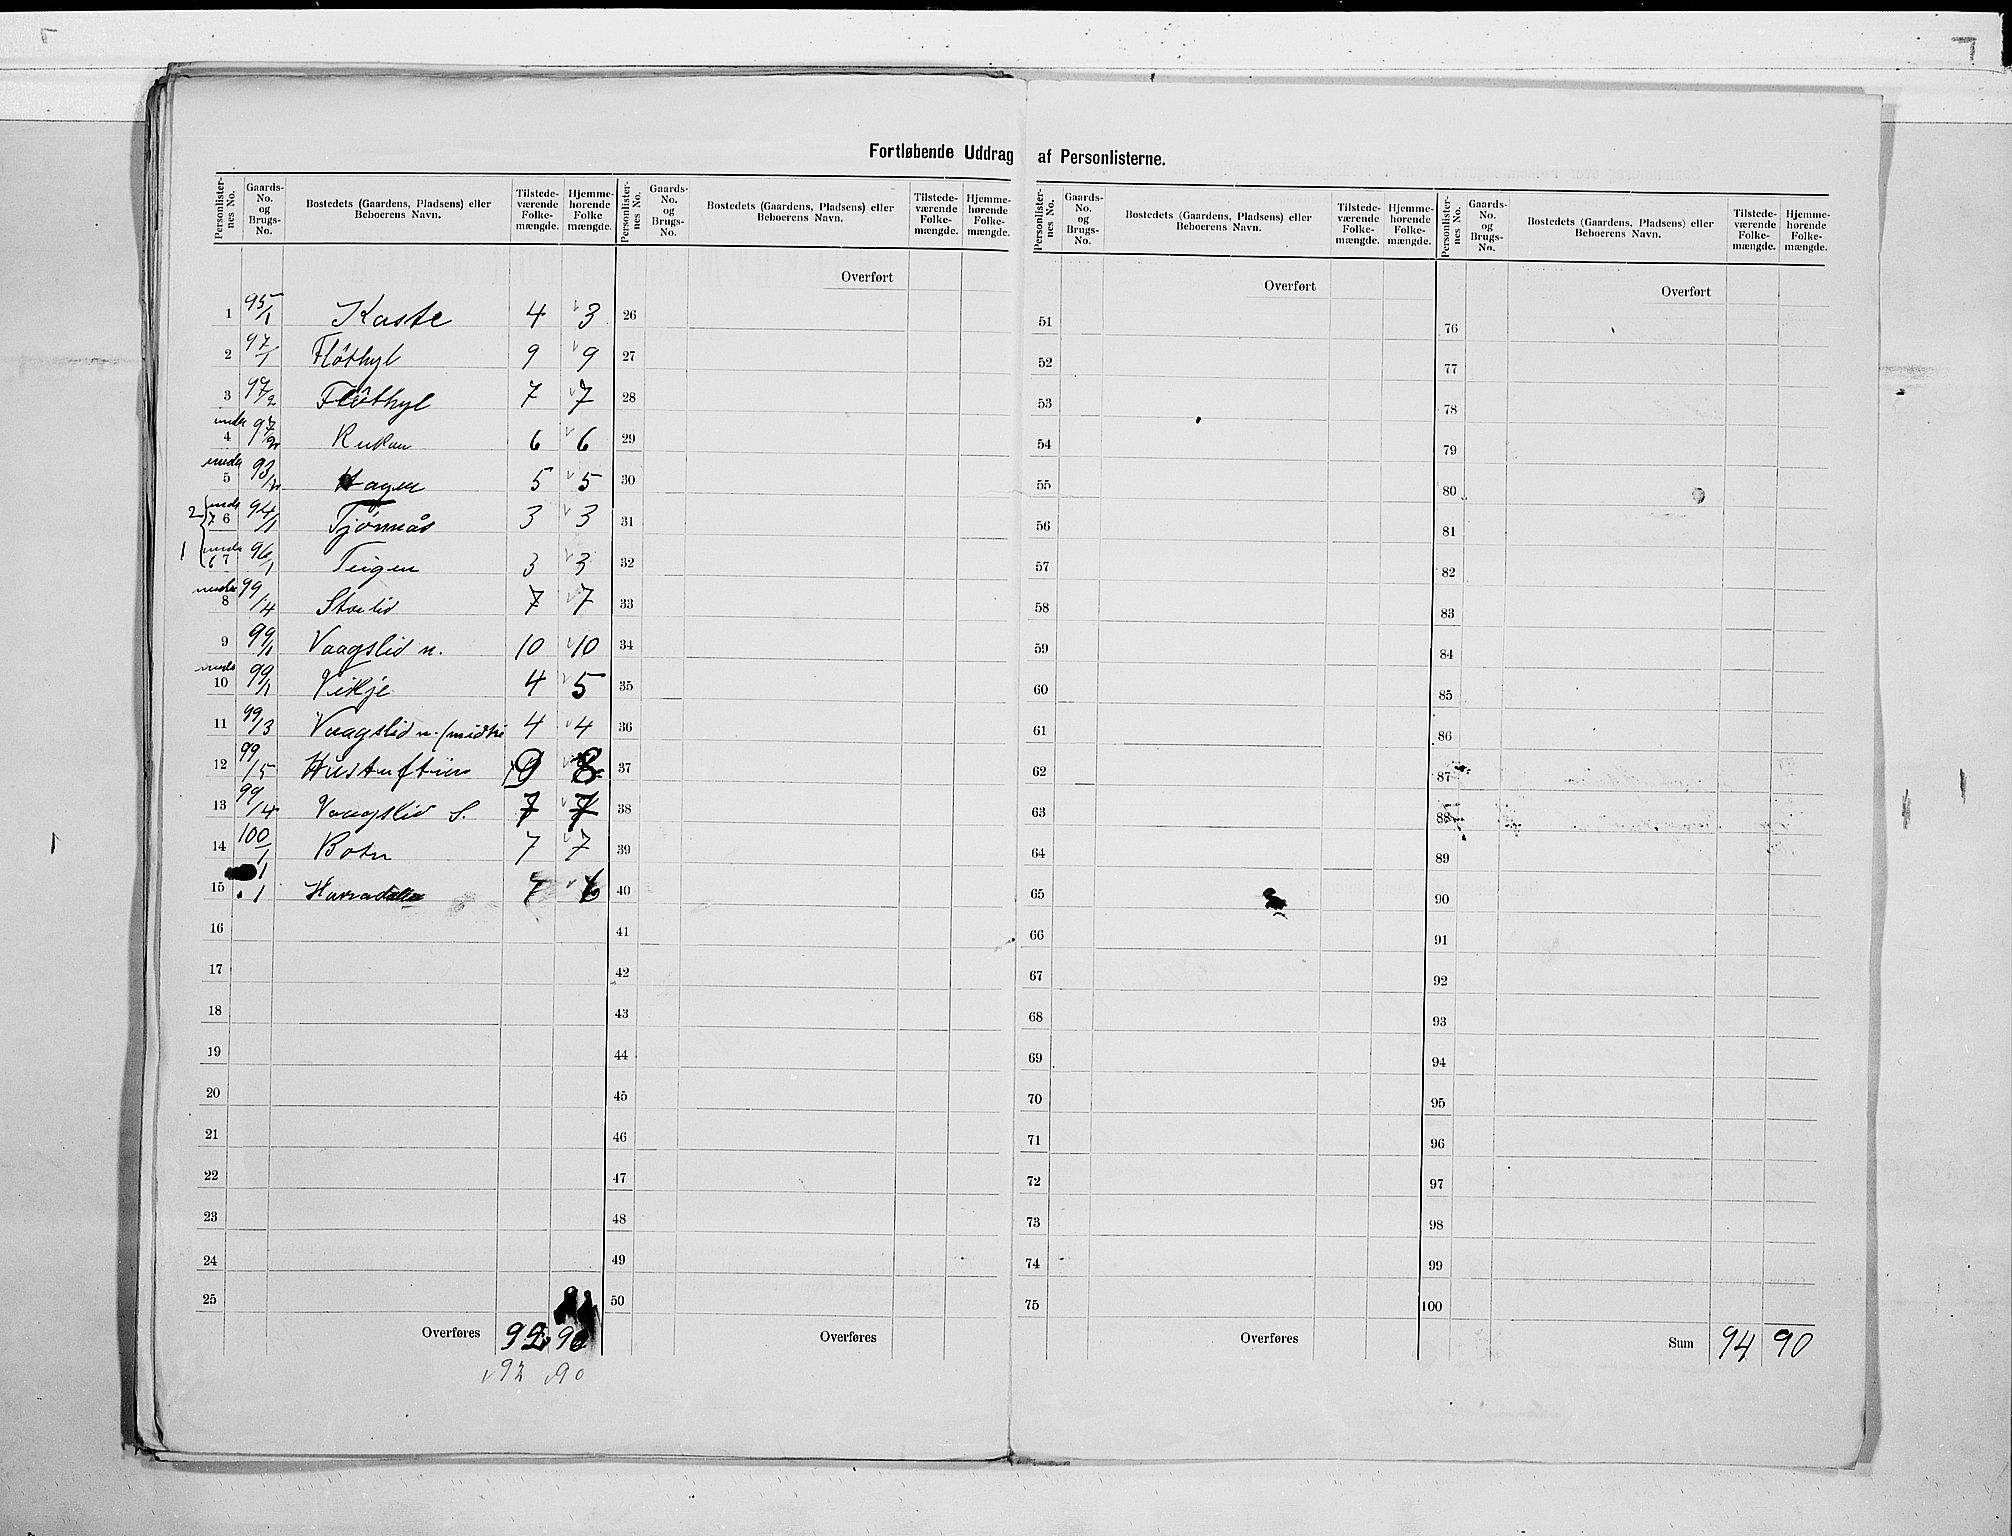 Fortløbende Uddrag af Personlisterne.
Personlister-nes No. Gaards-No. og Brugs-No. Bostedets (Gaardens, Pladsens) eller Beboerens Navn. Tilstede-værende Folke-mængde. Hjemme-hørende Folke mængde.
1 95/1 Kaste 4 3
2 97/1 Flöthyl 9 9
3 97/2 Flöthyl 7 7
4 97/2 Rukan 6 6
5 93/2 Hagen 5 5
2 7 6 94/1 Tjönnås 3 3
1 6 7 96/1 Teigen 3 3
8 99/4 Storlid 7 7
9 99/1 Vaagslid n. 10 10
10 99/1 Vikje 4 5
11 99/3 Vaagslid n. (midtre 4 4
12 99/5 Hustuftün 9 8
13 99/4 Vaagslid S. 7 7
14 100/1 Botn 7 7
15 1 7 6
16
17
18
19
20
21
22
23
24
25
Overføres 92 90
v92 v90
Personlister-nes No. Gaards-No. og Brugs-No. Bostedets (Gaardens, Pladsens) eller Beboerens Navn. Tilstede-værende Folke-mængde. Hjemme-hørende Folke-mængde.
Overført
26
27
28
29
30
31
32
33
34
35
36
37
38
39
40
41
42
43
44
45
46
47
48
49
50
Overføres
Personlister-nes No. Gaards-No. og Brugs-No. Bostedets (Gaardens, Pladsens) eller Beboerens Navn. Tilstede-værende Folke-mængde. Hjemme-hørende Folke-mængde.
Overført
51
52
53
54
55
56
57
58
59
60
61
62
63
64
65
66
67
68
69
70
71
72
73
74
75
Overføres
Personlister-nes No. Gaards-No. og Brugs-No. Bostedets (Gaardens, Pladsens) eller Beboerens Navn. Tilstede-værende Folke-mængde. Hjemme-hørende Folke-mængde.
Overført
76
77
78
79
80
81
82
83
84
85
86
87
88
89
90
91
92
93
94
95
96
97
98
99
100
Sum 94 90